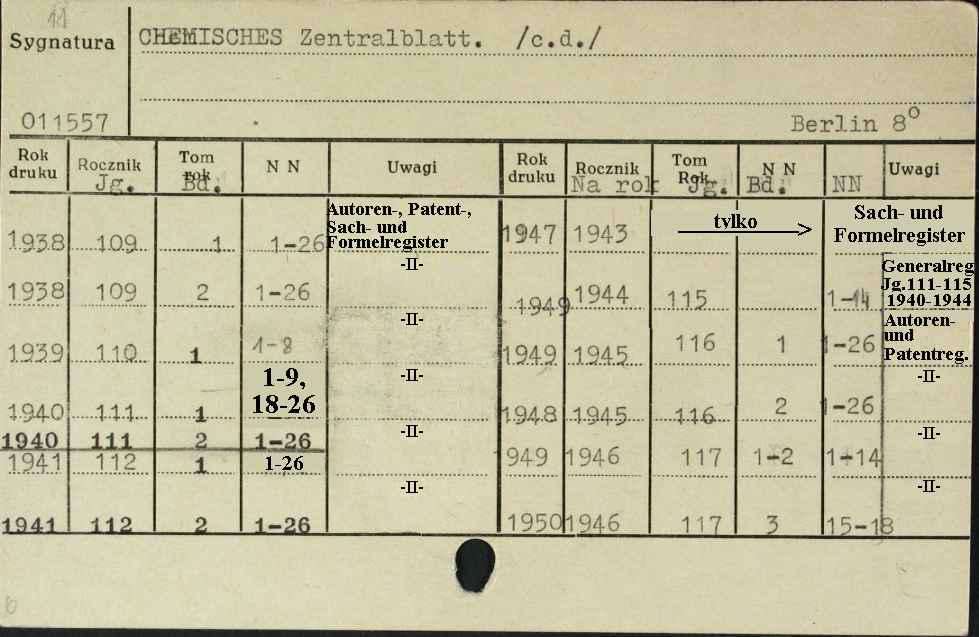 11
Sygnatura
CHEMISCHES Zentralblatt. /c.d./
011557
Berlin 8°
Rok druku Rocznik Jg. Tom rok Bd. N N Uwagi Rok druku Rocznik Na rok Tom Rok. Jg. N N Bd. NN Uwagi
1938 109 1 1-26 Autoren-, Patent-, Sach- und Formelregister
1938 109 2 1-26 -II-
1939 110 1 1-8 -II-
1940 111 1 1-9, 18-26 -II-
1940 111 2 1-26 -II-
1941 112 1 1-26
1941 112 2 1-26 -II-
1947 1943 tylko Sach- und Formelregister
1949 1944 115 1-14 Generalreg Jg.111-115 1940-1944
1949 1945 116 1 1-26 Autoren- und Patentreg.
1948 1945 116 2 1-26 -II-
949 1946 117 1-2 1-14 -II-
1950 1946 117 3 15-18 -II-
6